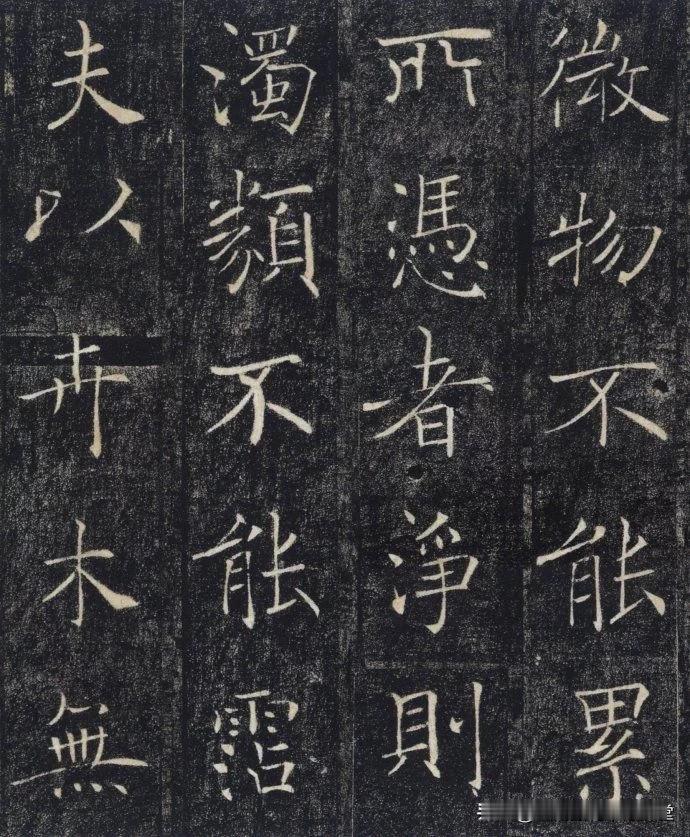 微物不能累
所憑者淨則
濁類不能霑
夫以卉木無